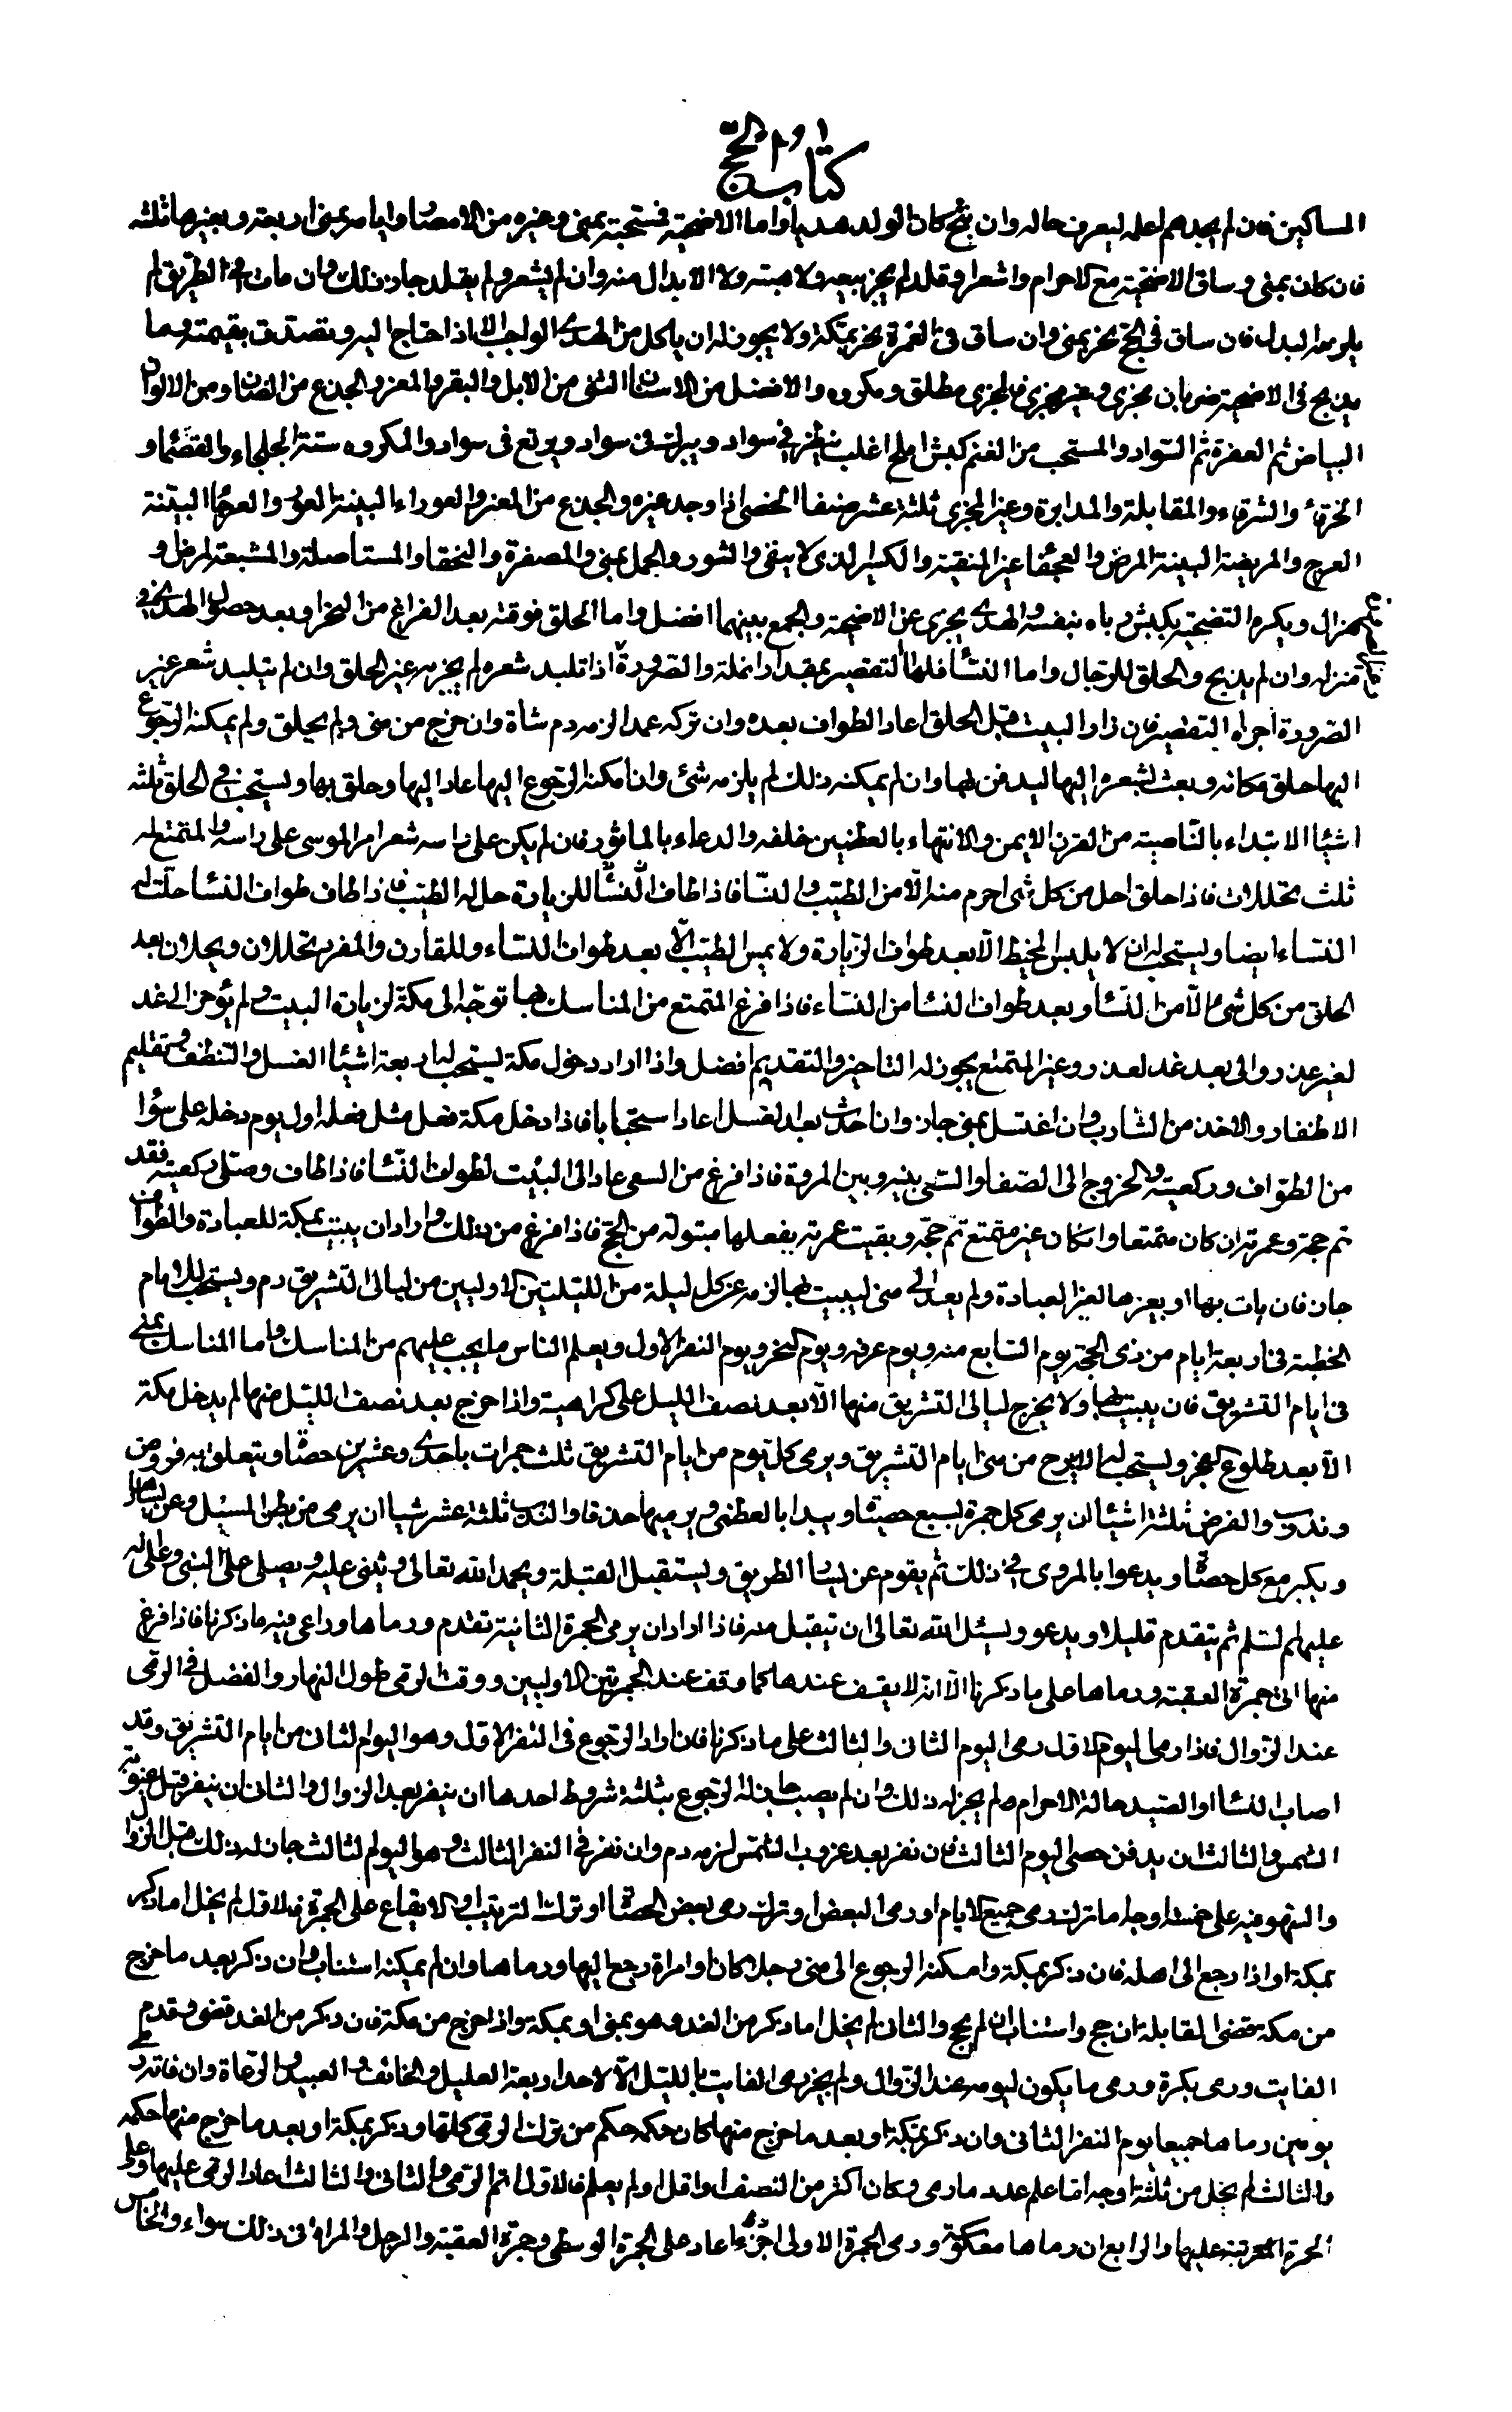 كتاب الحج
المساكين فان لم يجدهم اعلمه ليعرف حاله وان نتج كان الولد هديا واما الاضحية فستحبة بمنى وغيره من الامصار وايامه بمنى اربعة وبغيرها ثلثه
فان كان بمنى وساق الاضحية مع الاحرام واشعر او قلد لم يجز بيعه ولا هبته ولا الابدال منه وان لم يشعر ولم يقلد جاز ذلك وان مات في الطريق لم
يلزمه البدل فان ساق في الحج نحر بمنى وان ساق في العمرة نحر بمكة ولا يجوز له ان ياكل من الهدى الواجب الا اذا احتاج اليه وتصدق بقيمته وما
يذبح في الاضحية ضربان مجزى وغير مجزى فالمجزى مطلق ومكروه والافضل من الاسنان الثنى من الابل والبقر والمعز والجذع من الضان ومن الالوان
البياض ثم العفرة ثم السواد والمستحب من الغنم كبش املح اغلب ينظر في سواد ويبرك في سواد ويرتع في سواد والمكروه ستة الجلحاء والقصماء و
الخرقاء والشرقاء والمقابلة والمدابرة وغير المجزى ثلثة عشر صنفا الخصى اذا وجد غيره والجذع من المعز والعوراء البينة العور والعرجاء البينة
العرج والمريضة البينة المرض والعجفاء غير المنقية والكسير الذى لا ينقى والثور والجمل بمنى والمصفرة والنخقاء والمستاصلة والمشيعة لمرض او
هزال ويكره التضحية بكبش رباه بنفسه والهدى يجزى عن الاضحية والجمع بينهما افضل واما الحلق فوقته بعد الفراغ من النحر او بعد حصول الهدى في
منزله وان لم يذبح والحلق للرجال واما النساء فلها التقصير بمقدار انملة والصرورة اذا تلبد شعره لم يجزيه غير الحلق وان لم يتلبد شعر غير
الصرورة اجزاه التقصير فان زار البيت قبل الحلق اعاد الطواف بعده وان تركه عمدا لزمه دم شاة وان خرج من منى ولم يحلق ولم يمكنه الرجوع
اليها حلق مكانه وبعث بشعره اليها ليدفن بها وان لم يمكنه ذلك لم يلزمه شئ وان امكنه الرجوع اليها عاد اليها وحلق بها ويستحب في الحلق ثلثه
اشياء الابتداء بالناصية من القرن الايمن والانتهاء بالعظمين خلفه والدعاء بالماثور فان لم يكن على راسه شعر امر الموسى على راسه والمتمتع له
ثلث تحللات فاذا حلق احل من كل شئ احرم منه الا من الطيب والنساء فاذا طاف للزيارة حل له الطيب فاذا طاف طواف النساء حلت له
النساء ايضا ويستحب له ان لا يلبس المخيط الا بعد طواف الزيارة ولا يمس الطيب الا بعد طواف النساء وللقارن والمفرد تحللان ويحلان بعد
الحلق من كل شئ الا من النساء وبعد طواف النساء من النساء فاذا فرغ المتمتع من المناسك بها توجه الى مكة لزيارة البيت ولم يؤخر الى غد
لغير عذر والى بعد غد لعذر وغير المتمتع يجوز له التاخير والتقديم افضل واذا اراد دخول مكة يستحب له اربعة اشياء الغسل والتنظف وتقليم
الاظفار والاخذ من الشارب وان اغتسل بمنى جاز وان احدث بعد الغسل اعاد استحبابا فاذا دخل مكة فعل مثل فعله اول يوم دخله على سواء
من الطواف وركعتيه والخروج الى الصفا والسعى بينه وبين المروة فاذا فرغ من السعى عاد الى البيت لطواف النساء فاذا طاف وصلى ركعتيه فقد
تم حجة وعمرته ان كان متمتعا وان كان غير متمتع تم حجه وبقيت عمرته يفعلها مبتولة من الحج فاذا فرغ من ذلك واراد ان يبيت بمكة للعبادة والطواف
جاز فان بات بها او بغيرها لغير العبادة ولم يعد الى منى ليبيت بها لزمه عن كل ليلة من الليلتين الاوليين من ليالى التشريق دم ويستحب للامام
الخطبة في اربعة ايام من ذى الحجة يوم السابع منه ويوم عرفه ويوم النحر ويوم النفر الاول ويعلم الناس ما يجب عليهم من المناسك واما المناسك بمنى
في ايام التشريق فان يبيت بها ولا يخرج ليالى التشريق منها الا بعد نصف الليل على كراهية واذا خرج بعد نصف الليل منها لم يدخل مكة
الا بعد طلوع الفجر ويستحب له ان لا يبرح من منى ايام التشريق ويرمى كل يوم من ايام التشريق ثلث جمرات باحدى وعشرين حصاة ويتعلق به فروض
وندب والفرض ثلثة اشياء ان يرمى كل جمرة بسبع حصيات ويبدا بالعظمى ويرميها حذفا والندب ثلثة عشر شيئا ان يرمى من بطن المسيل وعن يسارها
ويكبر مع كل حصاة ويدعوا بالمروى في ذلك ثم يقوم عن يسار الطريق ويستقبل القبلة ويحمد الله تعالى ويثنى عليه ويصلى على النبى وعلى اله
عليهم السلم ثم يتقدم قليلا ويدعو ويسئل الله تعالى ان يتقبل منه فاذا اراد ان يرمى الجمرة الثانية تقدم ورماها وراعى فيه ما ذكرنا فاذا فرغ
منها اتى جمرة العقبة ورماها على ما ذكرنا الا انه لا يقف عندها كما وقف عند الجمرتين الاوليين ووقت الرمى طول النهار والفضل في الرمى
عند الزوال فاذا رمى اليوم الاول رمى اليوم الثانى والثالث على ما ذكرنا فان اراد الرجوع في النفر الاول وهو اليوم الثانى من ايام التشريق وقد
اصاب النساء او الصيد حالة الاحرام لم يجز له ذلك وان لم يصب جاز له الرجوع بثلثة شروط احدها ان ينفر بعد الزوال والثانى ان ينفر قبل غروب
الشمس والثالث ان يدفن حصى اليوم الثالث فان نفر بعد غروب الشمس لزمه دم وان نفر في النفر الثالث وهو اليوم الثالث جاز له ذلك قبل الزوال
والسهو فيه على خمسة اوجه اما ترك رمى جميع الايام او رمى البعض او ترك رمى بعض الحصاة او ترك الترتيب او الايقاع على الجمرة فالاول لم يخل اما ذكر
بمكة او اذا رجع الى اصله فان ذكر بمكة وامكنه الرجوع الى منى رجلا كان او امراة رجع اليها ورماها وان لم يمكنه استناب وان ذكر بعد ما خرج
من مكة قضى القابلة ان حج واستناب ان لم يحج والثانى لم يخل اما ذكر من الغد وهو بمنى او بمكة واذا خرج من مكة فان ذكر من الغد قضى وقدم
الفايت ورمى بكرة ورمى ما يكون ليومه عند الزوال ولم يجز رمى الفايت بالليل الا لاحد اربعة العليل والخائف والعبيد والرعاة وان فاته رمى
يومين رماها جميعا يوم النفر الثانى وان ذكر بمكة او بعد ما خرج منها كان حكمه حكم من ترك الرمى كلها وذكر بمكة او بعد ما خرج منها حكمه
والثالث لم يخل من ثلثة اوجه اما علم عدد ما رمى وكان اكثر من النصف او اقل او لم يعلم فالاول اتم الرمى والثانى والثالث اعاد الرمى عليها وعلى
الجمرة المرتبة عليها والرابع ان رماها معكوسة ورمى الجمرة الاولى اجزء اعاد على الجمرة الوسطى وجمرة العقبة والرجل والمراة في ذلك سواء والخامس